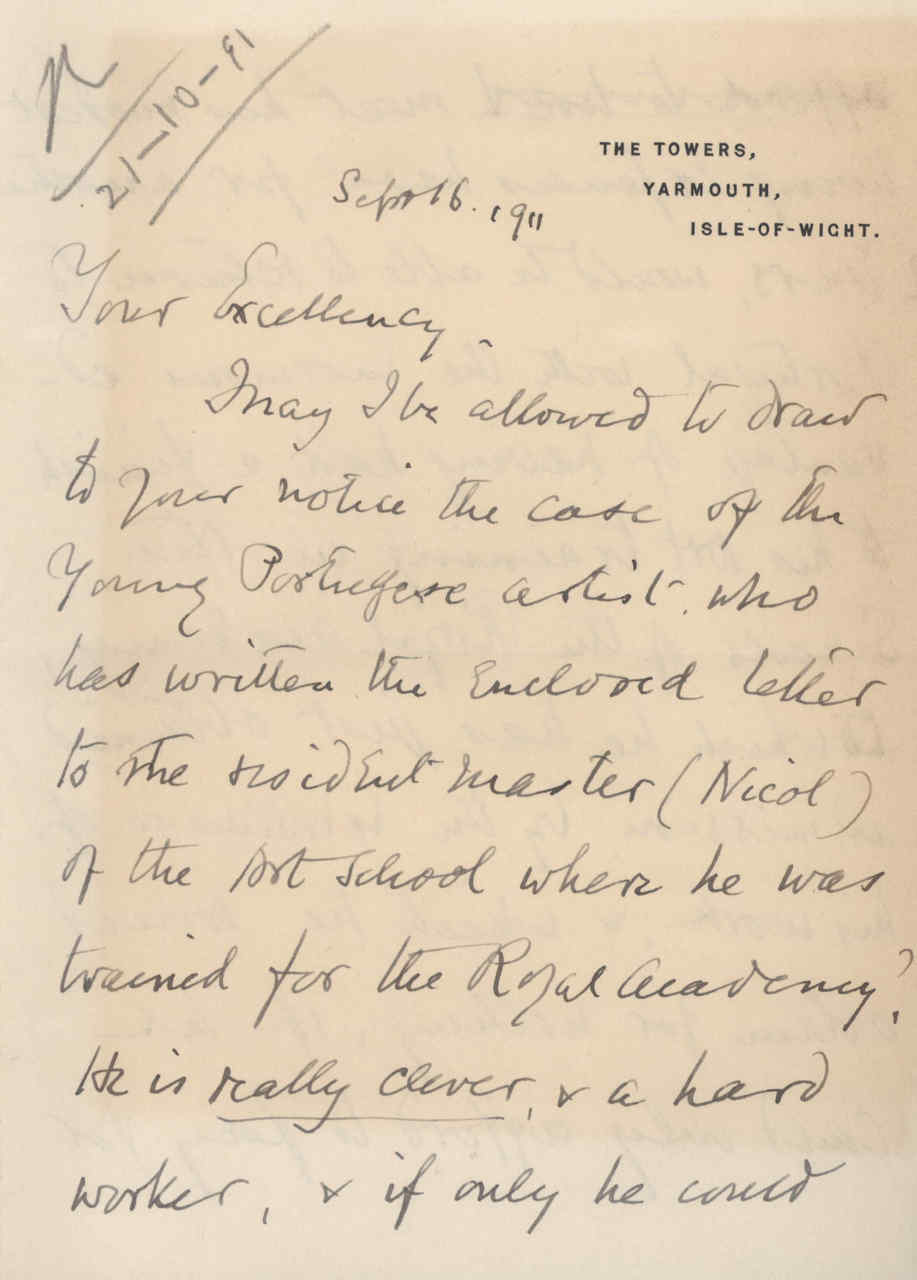 R
21-10-91
THE TOWERS,
YARMOUTH,
ISLE-OF-WIGHT.
Sept 16. 1911
Your Excellency
May I be allowed to draw
to your notice the case of the
Young Portugese artist who
has written the enclosed letter
to the resident master (Nicol)
of the Art School where he was
trained for the Royal Academy?
He is really clever, & a hard
worker, & if only he could